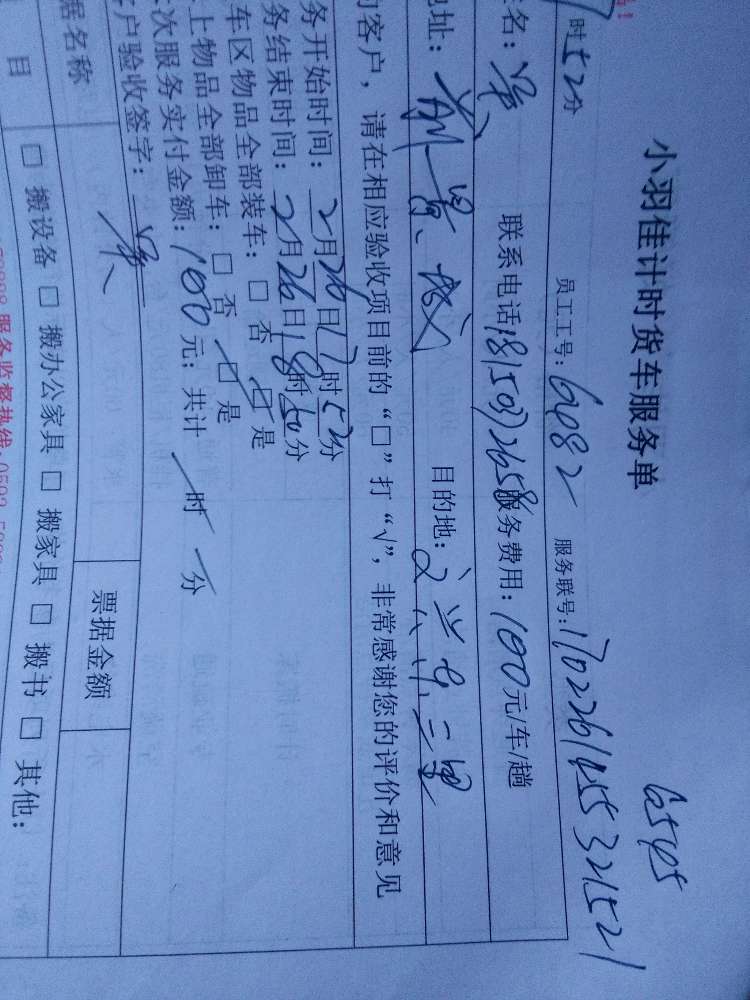 小羽佳计时货车服务单
6545
时52分 员工工号：6082 服务联号：1702261455321521
名：吴 联系电话18150972658服务费用：100元/车/趟
地址： 目的地：
的客户，请在相应验收项目前的“□”打“√”，非常感谢您的评价和意见
务开始时间：2月26日17时52分
务结束时间：2月26日18时50分
车区物品全部装车：□ 否 □ 是
上物品全部卸车：□ 否 □ 是
次服务实付金额：100元；共计 时 分
客户验收签字：吴
据名称 票据金额
目 □ 搬设备 □ 搬办公家具 □ 搬家具 □ 搬书 □ 其他：
服务监督热线：0592-